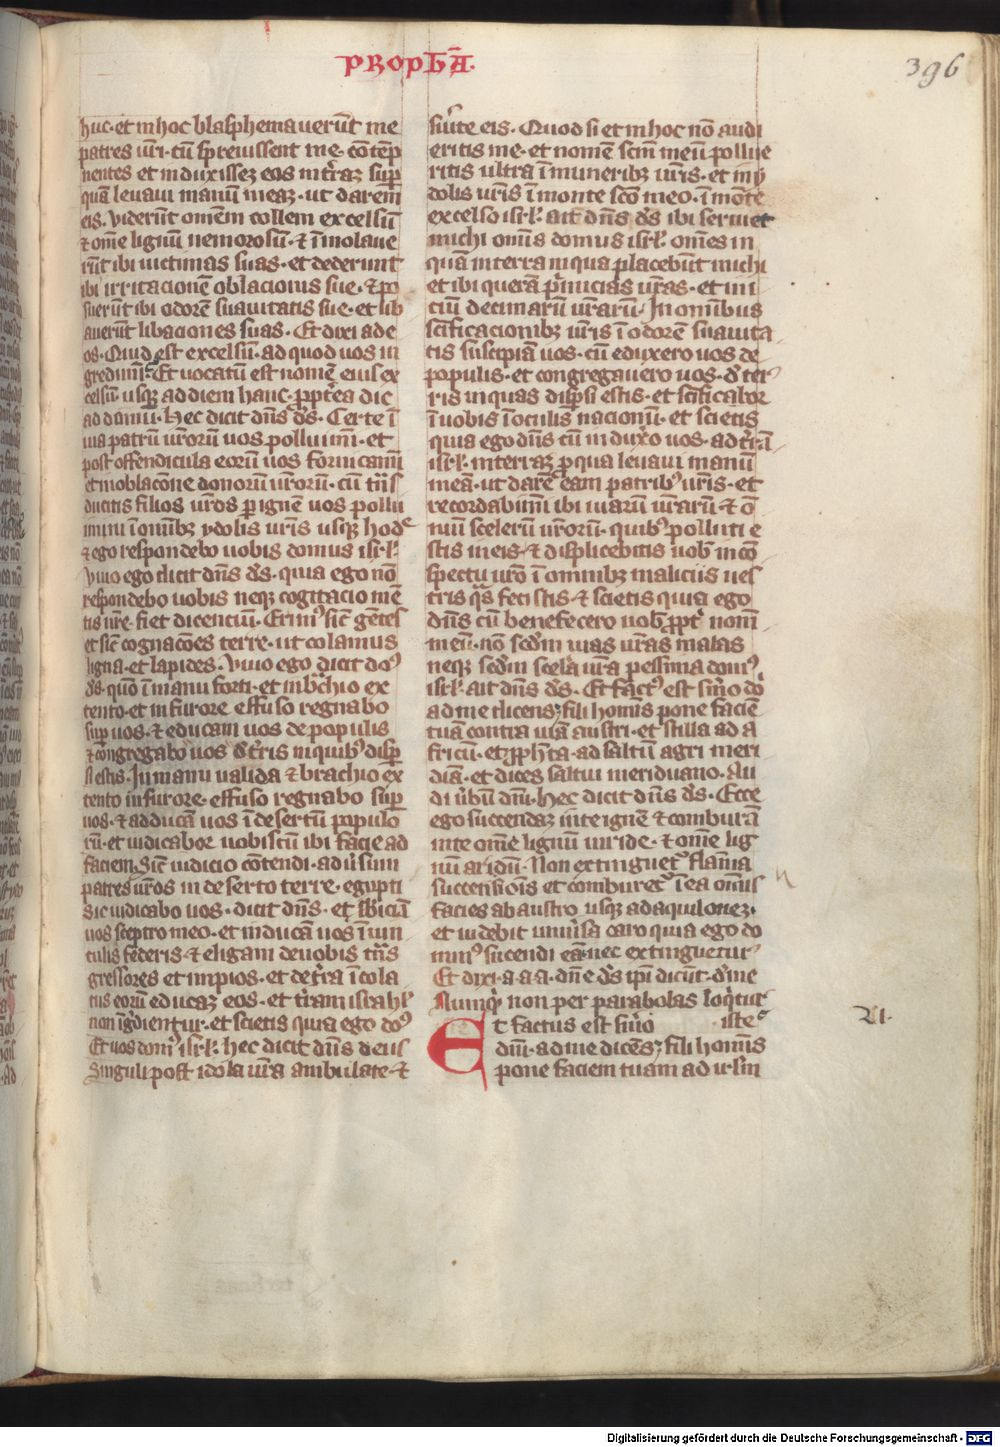 PROPhĀ.
396
huc. et in hoc blasphemauerūt me
patres ur̄i. cū spreuissent me. cōtēp
nentes et induxissez eos in tr̄az sup̄
quā leuaui manum meaz. ut darem
eis. Viderūt omēm collem excelsū
⁊ omē lignū nemorosū. ⁊ ī̄molaue
rūt ibi uictimas suas. et dederunt
ibi irritacionē oblacionis sue. ⁊ po
suerūt ibi odorē suauitatis sue. et lib
auerūt libaciones suas. Et dixi ad e
os. Quid est excelsū. ad quod uos in
gredimī. Et uocatū est nomē eius ex
celsū usq̄ ad diem hanc. p̄pt̄ea dic
ad domū. Hec dicit dn̄s ds̄. Certe ī
uia patrū ur̄orū uos polluimī. et
post offendicula eorū uos fornicamī
et in oblacōne donorū ur̄orū. cū tn̄s
ducitis filios ur̄os p ignē uos pollu
imini ī omībz ydolis ur̄is usq̄ hodᵉ
⁊ ego respondebo uobis domus isrł.
Viuo ego dicit dn̄s ds̄. quia ego nō
respondebo uobis neq̄ cogitacio mē
tis ur̄e. fiet dicentiū. Erimꝰ sic̄ gētes
et sic̄ cognacōes terre. ut colamus
ligna. et lapides. Viuo ego dicit doꝰ
ds̄. quō ī manu forti. et in br̄chio ex
tento. et in furore effuso regnabo
sup̄ uos. ⁊ educam uos de populis
⁊ congregabo uos d̄ tr̄is in quibꝰ disp̄
si estis. In manu ualida ⁊ brachio ex
tento in furore. effuso regnabo sup̄
uos. ⁊ adducā uos ī desertū populo
rū. et iudicabor uobiscū ibi facie ad
faciem. Sic̄ iudicio cōtendi. aduersum
patres ur̄os in deserto terre. egypti
sic iudicabo uos. dicit dn̄s. et sb̄iciā
uos sceptro meo. et inducā uos ī uin
culis federis. ⁊ eligam de uobis tn̄s
gressores et impios. et de tr̄a īcola
tus eorū educaz eos. et tr̄am israhł
non īgr̄dientur. et scietis quia ego doꝰ
Et uos domꝰ isrł. hec dicit dn̄s deus
Singuli post idola ur̄a ambulate ⁊
siūte eis. Quod si et in hoc nō audi
eritis me. et nomē scm̄ meū pollue
ritis ultra ī muneribz ur̄is. et in y
dolis ur̄is ī monte scō meo. ī mōte
excelso isrł. ait dn̄s ds̄ ibi seruiet
michi omīs domus isrł. omēs in
quā in terra in qua placebūt michi
et ibi querā p̄micias ur̄as. et ini
ciū decimarū ur̄arū. In omībus
scificacionibz ur̄is ī odorē suauita
tis suscipiā uos. cū eduxero uos de
populis. et congregauero uos. d̄ ter
ris in quas disp̄si estis. et scificabor
ī uobis ī oculis nacionū. et scietis
quia ego dn̄s cū induxo uos. ad tr̄ā
isrł. in terraz p qua leuaui manū
meā. ut darē eam patribꝰ ur̄is. et
recordabimī ibi uiarū ur̄arū ⁊ o
niū scelerū ur̄orū. quibꝰ polluti e
stis in eis. ⁊ displicebitis uob̄ in cō
spectu ur̄o ī omnibz maliciis ues
tris q̄s fecistis. ⁊ scietis quia ego
dn̄s cū benefecero uob̄ p̄pt̄ nomē
meū. nō scd̄m uias ur̄as malas
neq̄ scd̄m scela ur̄a pessima domꝰ
isrł. ait dn̄s ds̄. Et fact̄ꝰ est sm̄o dō
ad me dicens; fili homīs pone faciē
tuā contra uiā austri. et stilla ad a
fricū. et p̄ph̄ta. ad saltū agri meri
diā. et dices saltui meridiano. Au
di ub̄ū dnī. hec dicit dn̄s ds̄. Ecce
ego succendaz in te ignē ⁊ comburā
in te omē lignū uiride. ⁊ omē lig
nū aridū. Non extinguet̄ flamā
succensionis et comburet̄ ī ea omīs
facies ab austro usq̄ ad aquilonez.
et uidebit uniūsa caro quia ego do
minꝰ succendi eā. nec extinguetur
Et dixi. a.a.a. dn̄e ds̄ ipī dicūt. d̄ me
Numq̄ non per parabolas loq̄tur
Et factus est sm̄o iste
dnī. ad me dicēs; fili homīs
pone faciem tuam ad irłm
VI.
Digitalisierung gefördert durch die Deutsche Forschungsgemeinschaft - DFG